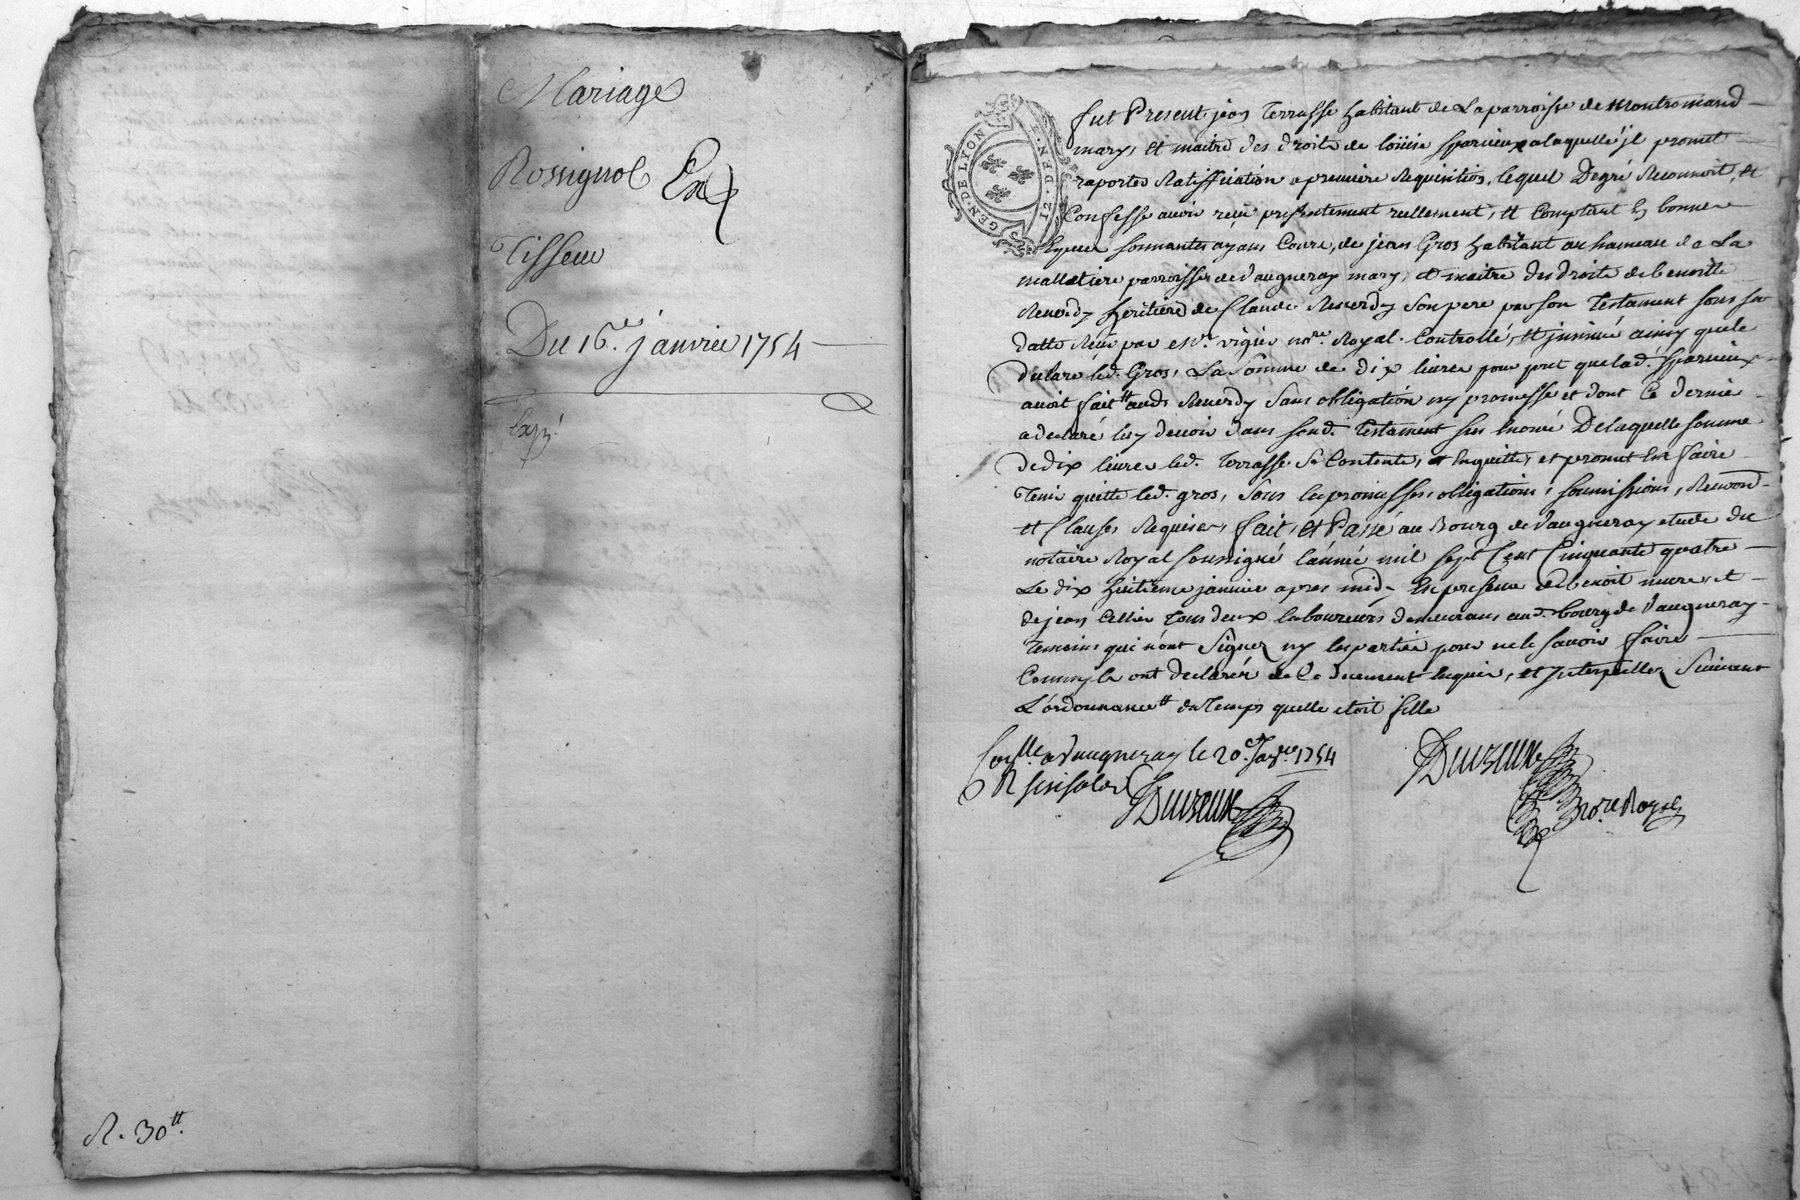 Mariage
Rossignol Ex
Tisseur
Du 16.e janvier 1754
Exp.é
R. 30tt.
GEN. DE LYON
12. DEN.
fut Present jean Terrasse habitant de La parroisse de Montromand
mary, et maitre des droits de loüise sparieux a laquelle jl promet
raporter Ratiffication a premiere Requisition, lequel Degré Reconnoit, et
Confesse avoir reçu presentement reellement, et Comptant En bonnes
Especes sonnantes ayans Cours, de jean Gros habitant au hameau de La
malletiere parroisse de Vaugneray mary, et maitre des droits de benoitte
Reverdy heritiere de Claude Reverdy Son pere par son Testament sous sa
datte Reçu par Me. vigier no.re Royal. Controllé, et jnsinué ainsy que le
declare led. Gros, La Somme de dix livres pour pret que lad. sparieux
avoit fait tt aud. Reverdy Sans obligation ny promesse et dont Ce dernier
a declaré luy devoir dans sond. Testament sus Enoncé De laquelle somme
de dix livres led. Terrasse Se Contente, et Enquitte, et promet En faire
Tenir quitte led. gros, Sous les promesses, obligations, soumissions, Renond.
et Clauses Requises, fait, et Passé au Bourg de Vaugneray etude du
notaire Royal soussigné l'année mil sept Cent Cinquante quatre
Le dix huitieme janvier apres midy En presence de benoit mure, et
de jean Cellier Tous deux laboureurs demeurans aud. bourg de Vaugneray
Temoins qui n'ont Signez ny les parties pour ne le savoir faire
Comm'ils ont declarér de Ce Duement Enquis, et Interpellez Suivant
L'ordonnance tt du Temps quelle etoit fille
Con.lle a Vaugneray le 20.e Janv.er 1754
R six sols
Duvzeux
Duvzeux
No.re Royal